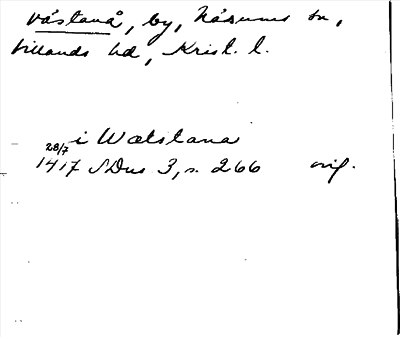 Västanå, by, Näsums sn,
Villands hd, Krist. l.
i Wætstana
28/7
1417 SDns 3, s. 266 orig.